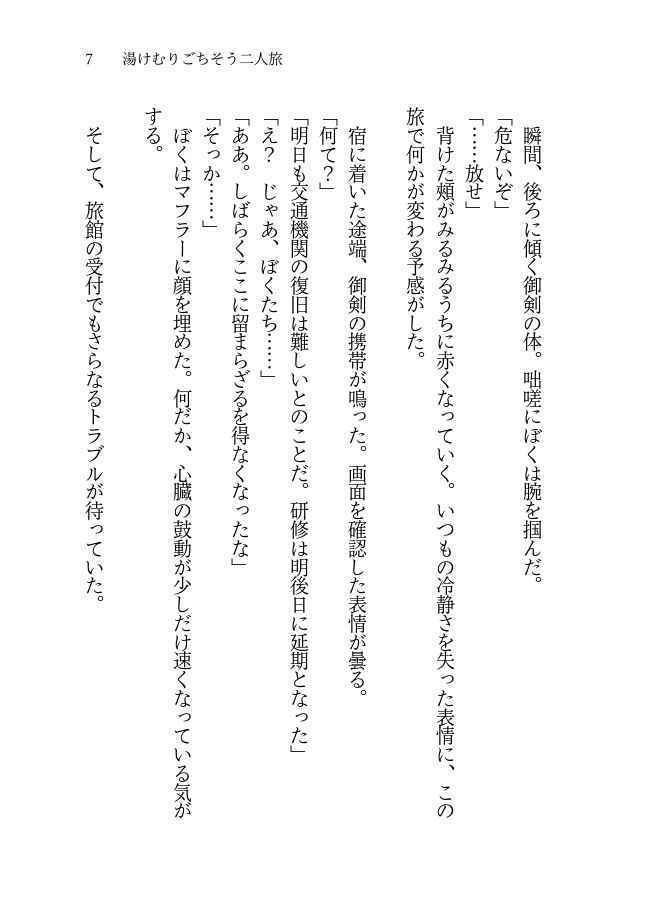 7　湯けむりごちそう二人旅
　瞬間、後ろに傾く御剣の体。咄嗟にぼくは腕を掴んだ。
「危ないぞ」
「……放せ」
　背けた頬がみるみるうちに赤くなっていく。いつもの冷静さを失った表情に、この
旅で何かが変わる予感がした。
　宿に着いた途端、御剣の携帯が鳴った。画面を確認した表情が曇る。
「何て？」
「明日も交通機関の復旧は難しいとのことだ。研修は明後日に延期となった」
「え？　じゃあ、ぼくたち……」
「ああ。しばらくここに留まらざるを得なくなったな」
「そっか……」
　ぼくはマフラーに顔を埋めた。何だか、心臓の鼓動が少しだけ速くなっている気が
する。
　そして、旅館の受付でもさらなるトラブルが待っていた。